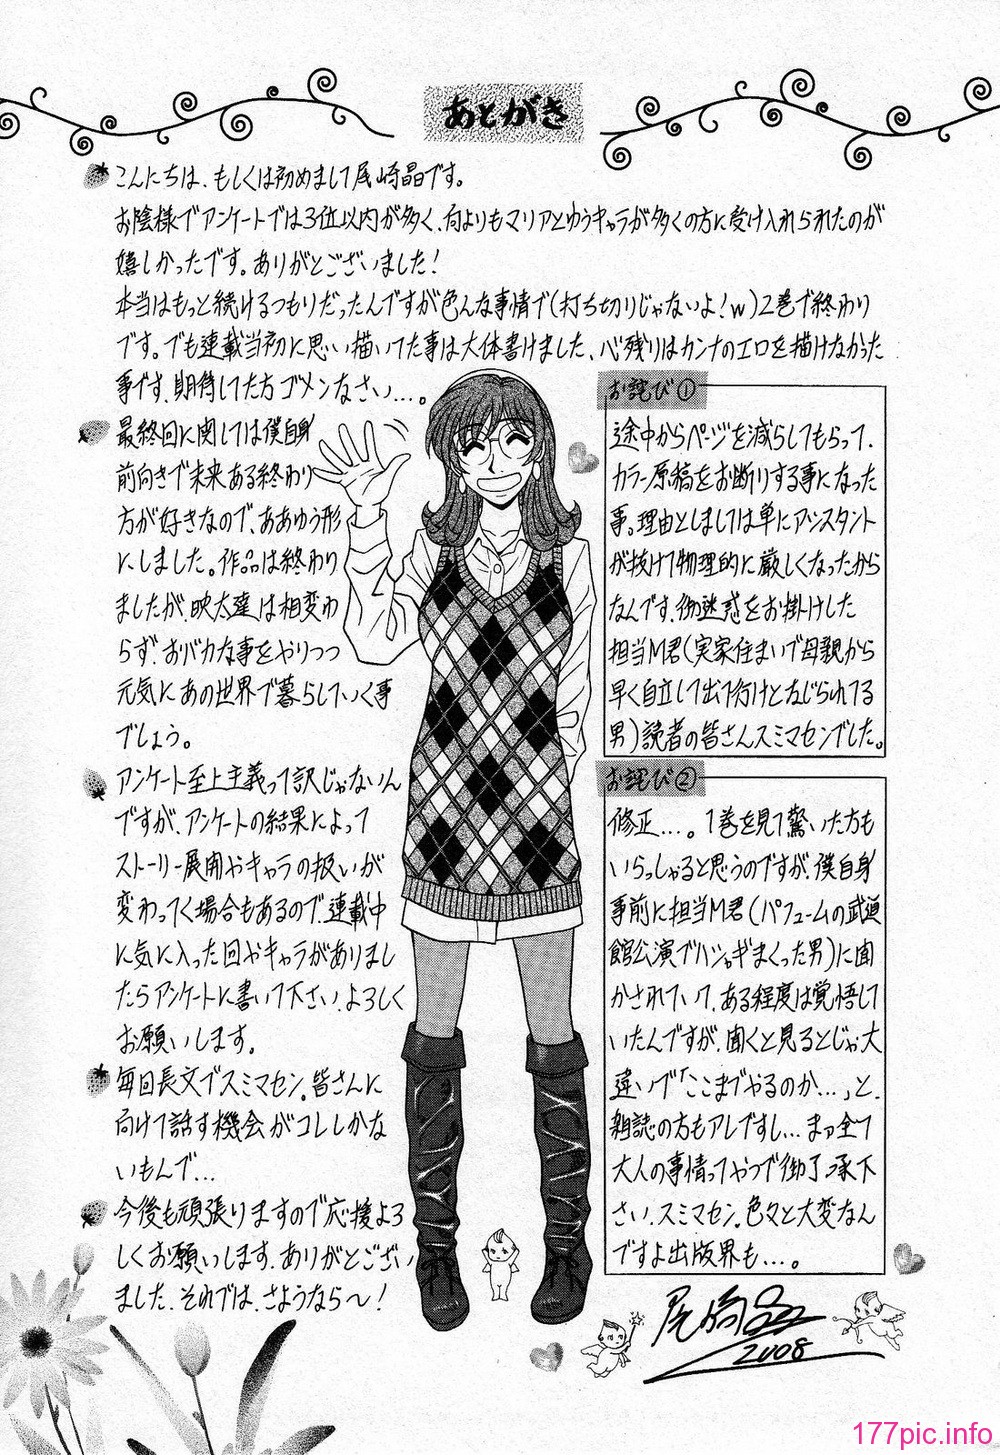 あとがき
こんにちは、もしくは初めまして尾崎晶です。
お陰様でアンケートでは3位以内が多く、何よりもマリアとゆうキャラが多くの方に受け入れられたのが
嬉しかったです。ありがとございました!
本当はもっと続けるつもりだったんですが色んな事情で(打ち切りじゃないよ!w)2巻で終わり
です。でも連載当初に思い描いてた事は大体書けました、心残りはカンナのエロを描けなかった
事です、期待してた方ゴメンなさい…。
最終回に関しては僕自身
前向きで未来ある終わり
方が好きなので、ああゆう形
にしました。作品は終わり
ましたが、映太達は相変わ
らず、おバカな事をやりつつ
元気にあの世界で暮らしていく事
でしょう。
アンケート至上主義って訳じゃないん
ですが、アンケートの結果によって
ストーリー展開やキャラの扱いが
変わってく場合もあるので、連載中
に気に入った回やキャラがありまし
たらアンケートに書いて下さい、よろしく
お願いします。
毎回長文でスミマセン。皆さんに
向けて話す機会がコレしかな
いもんで…
今後も頑張りますので応援よろ
しくお願いします、ありがとござい
ました、それでは、さようなら〜!
お詫び①
途中からページを減らしてもらって、
カラー原稿をお断りする事になった
事。理由としましては単にアシスタント
が抜けて物理的に厳しくなったから
なんです、御迷惑をお掛けした
担当M君(実家住まいで母親から
早く自立して出て行けとなじられてる
男)読者の皆さんスミマセンでした。
お詫び②
修正…。1巻を見て驚いた方も
いらっしゃると思うのですが、僕自身
事前に担当M君(パフュームの武道
館公演でハシャギまくった男)に聞
かされていて、ある程度は覚悟して
いたんですが、聞くと見るとじゃ大
違いで「ここまでやるのか…」と、
雑誌の方もアレですし…まァ全て
大人の事情ってやつで御了承下
さい、スミマセン。色々と大変なん
ですよ出版界も…。
尾崎晶
2008
177pic.info